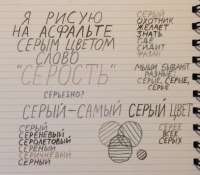 Я РИСУЮ
НА АСФАЛЬТЕ
СЕРЫМ ЦВЕТОМ
СЛОВО
"СЕРОСТЬ"
СЕРЬЕЗНО?
СЕРЫЙ
ОХОТНИК
ЖЕЛАЕТ
ЗНАТЬ
ГДЕ
СИДИТ
МЫШИ БЫВАЮТ
РАЗНЫЕ
СЕРЫЕ, СЕРЫЕ,
СЕРЫЕ
СЕРЫЙ-САМЫЙ СЕРЫЙ ЦВЕТ
СЕРЫЙ
СЕРЕНЕВЫЙ
СЕРОЛЕТОВЫЙ
СЕРЕНЫЙ
СЕРИЧНЕВЫЙ
СЕРНЫЙ
СЕРЕЕ
ВСЕХ
СЕРЫХ